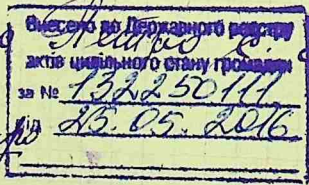 Внесено до Державного реєстру
актів цивільного стану громадян
за № 132250111
від 25.05.2016